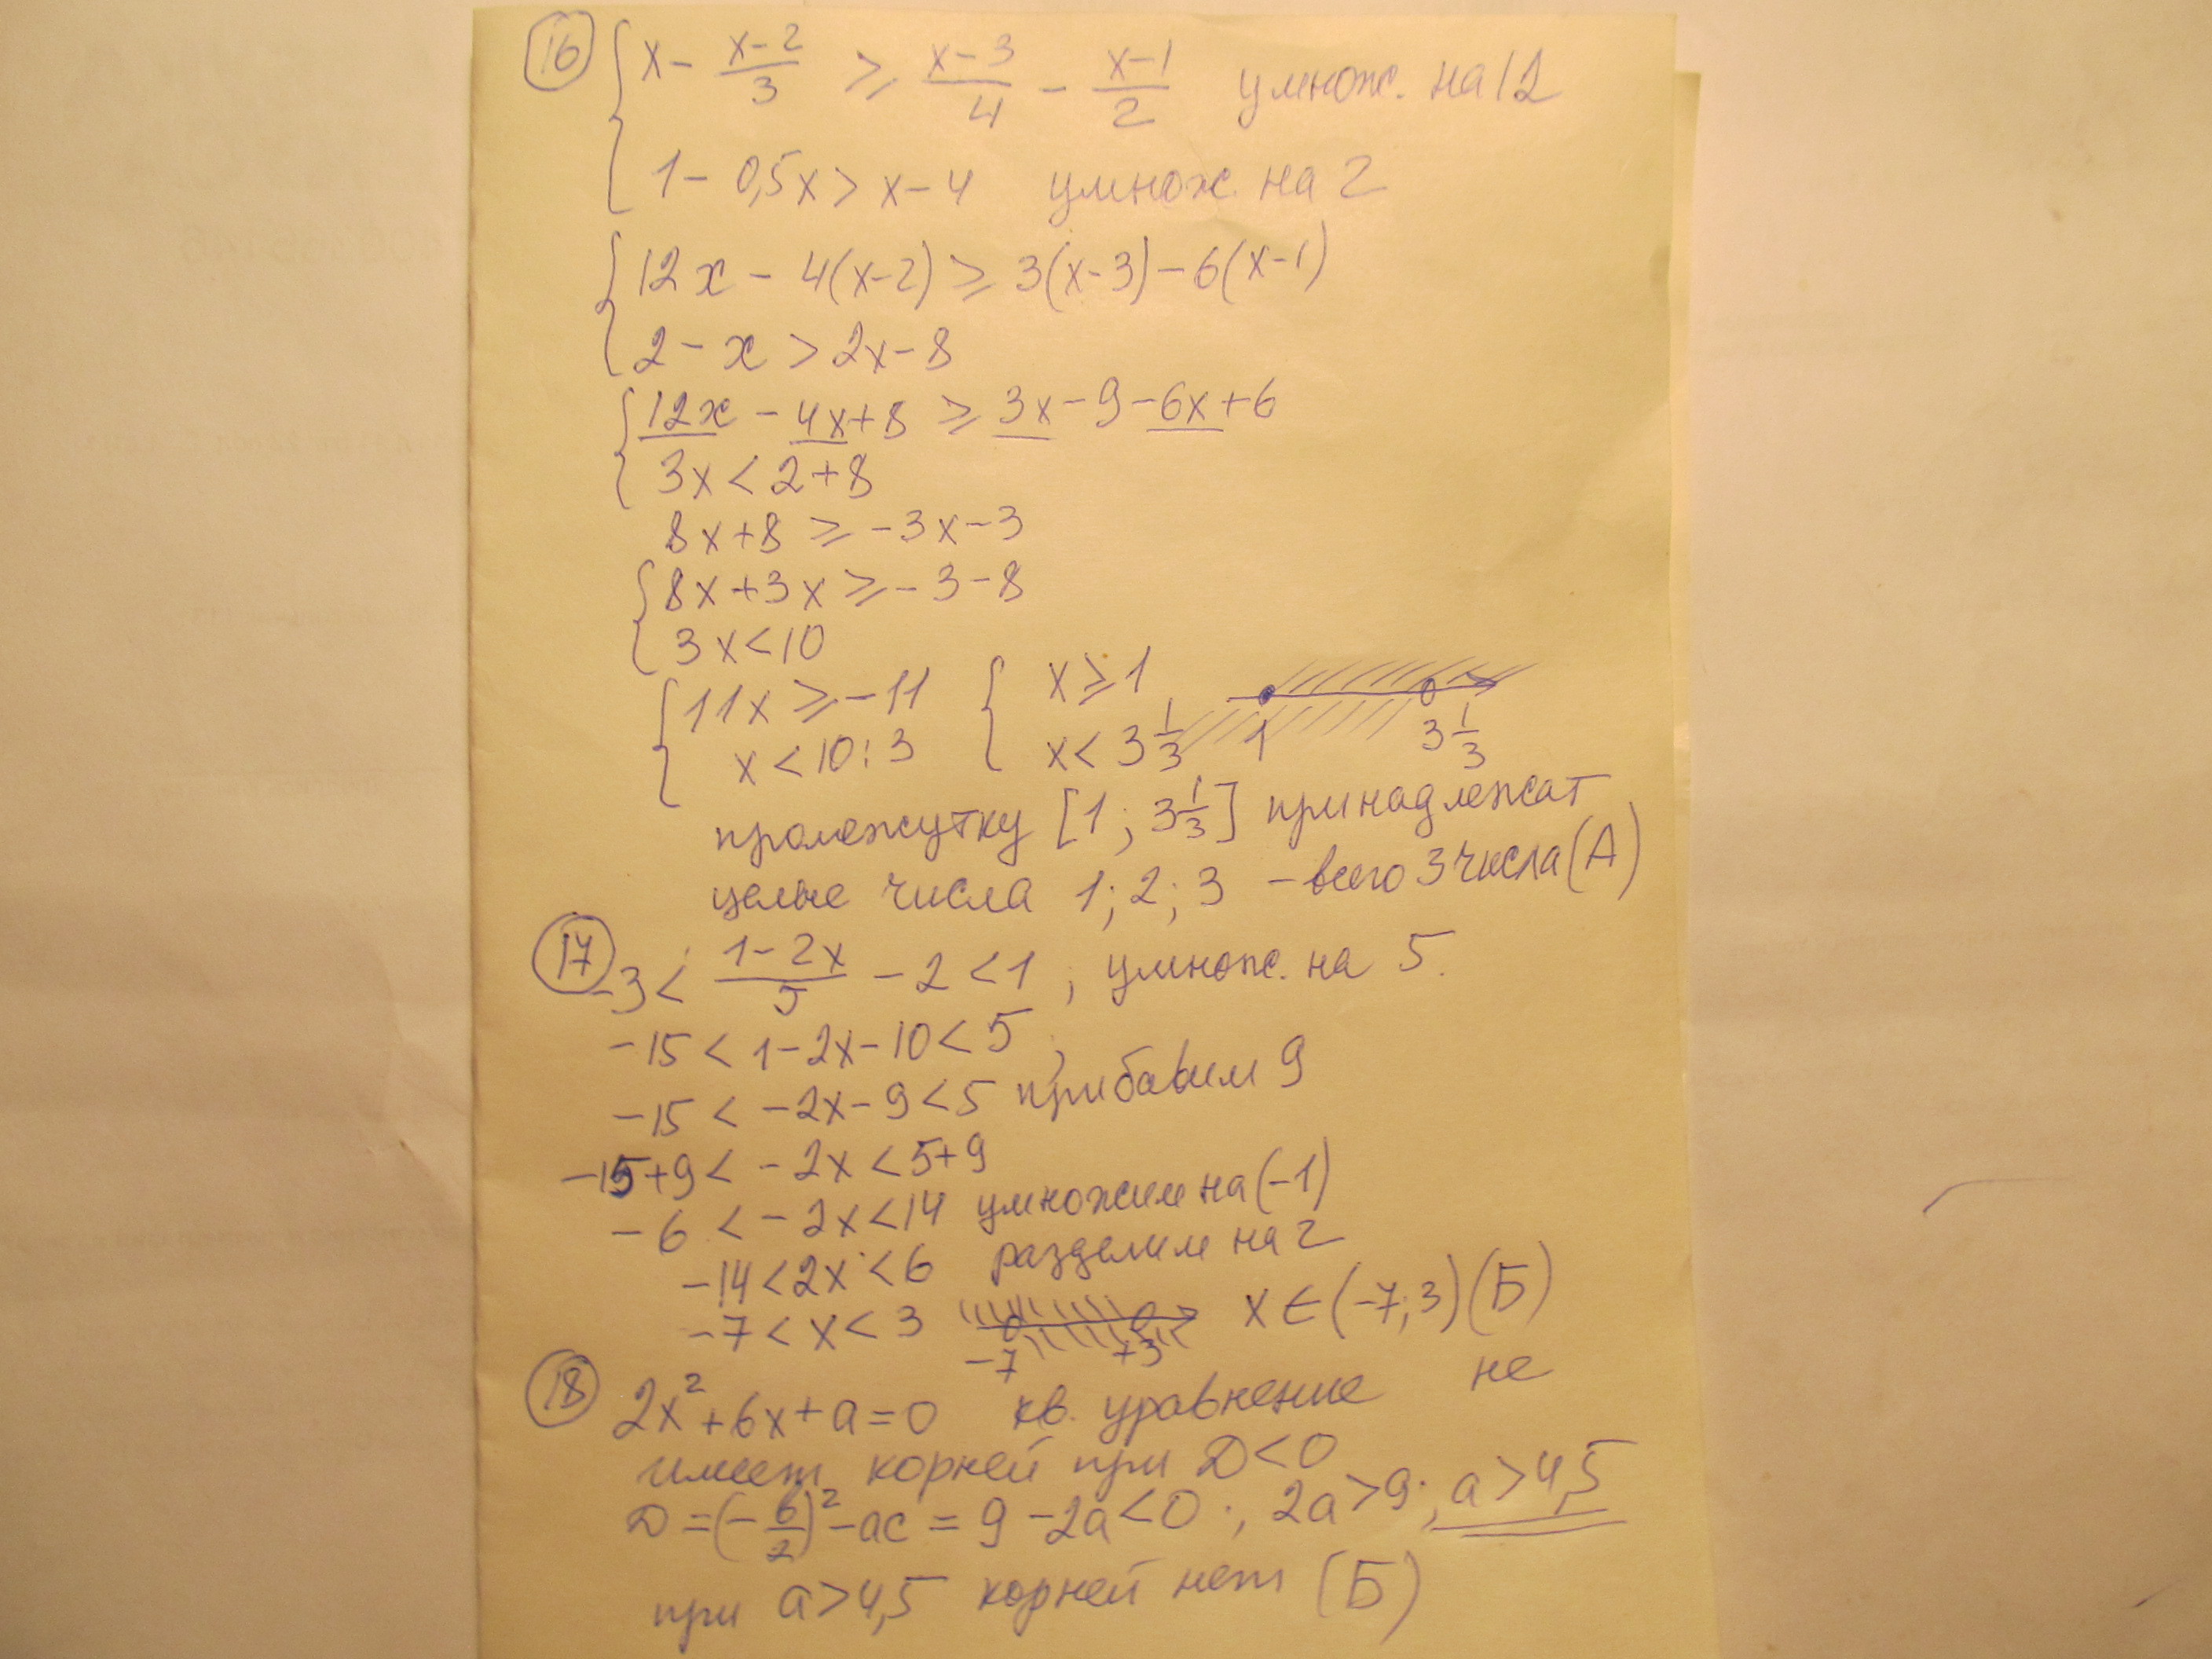 16) { x - (x-2)/3 ⩾ (x-3)/4 - (x-1)/2 умнож. на 12
1 - 0,5x > x - 4 умнож. на 2
{ 12x - 4(x-2) ⩾ 3(x-3) - 6(x-1)
2 - x > 2x - 8
{ 12x - 4x + 8 ⩾ 3x - 9 - 6x + 6
3x < 2 + 8
8x + 8 ⩾ -3x - 3
{ 8x + 3x ⩾ -3 - 8
3x < 10
{ 11x ⩾ -11 { x ⩾ 1
x < 10 : 3 x < 3 1/3 1 3 1/3
промежутку [1; 3 1/3] принадлежат
целые числа 1; 2; 3 - всего 3 числа (А)
17) -3 < (1-2x)/5 - 2 < 1, умнож. на 5.
-15 < 1 - 2x - 10 < 5,
-15 < -2x - 9 < 5 прибавим 9
-15 + 9 < -2x < 5 + 9
-6 < -2x < 14 умножим на (-1)
-14 < 2x < 6 разделим на 2
-7 < x < 3 -7 +3 x ∈ (-7; 3) (Б)
18) 2x² + 6x + a = 0 кв. уравнение не
имеет корней при D < 0
D = (-6/2)² - ac = 9 - 2a < 0; 2a > 9; a > 4,5
при a > 4,5 корней нет (Б)